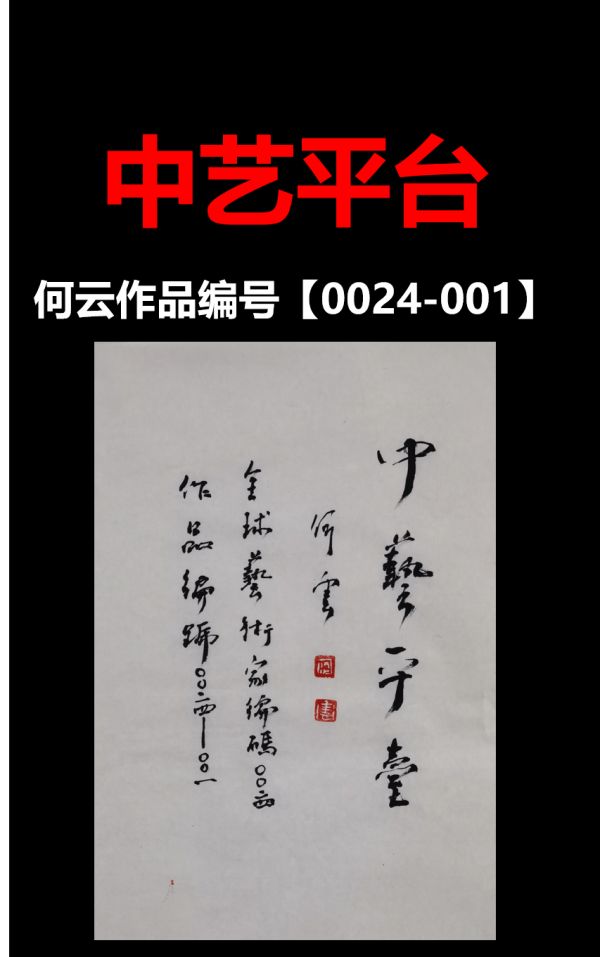 中艺平台
何云作品编号【0024-001】
中藝平臺
何雲
全球藝術家編碼〇〇二四
作品編號〇〇二四—〇〇一